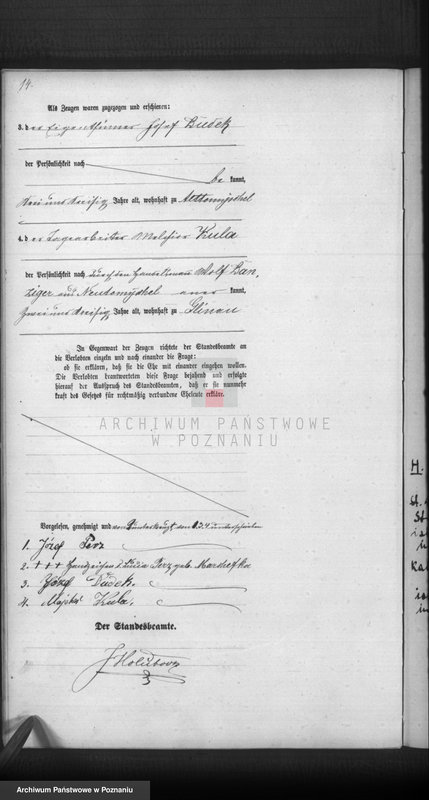 14.
Als Zeugen waren zugezogen und erschienen:
3. der Eigenthümer Josef Dudek
der Persönlichkeit nach
be kannt,
drei und dreißig Jahre alt, wohnhaft zu Alttomyschel
4. der Tagearbeiter Melchior Kula
der Persönlichkeit nach durch den Handelsmann Wolf Dan-
ziger aus Neutomyschel aner kannt,
zwei und dreißig Jahre alt, wohnhaft zu Glinau
In Gegenwart der Zeugen richtete der Standesbeamte an
die Verlobten einzeln und nach einander die Frage:
ob sie erklären, daß sie die Ehe mit einander eingehen wollen.
Die Verlobten beantworteten diese Frage bejahend und erfolgte
hierauf der Ausspruch des Standesbeamten, daß er sie nunmehr
kraft des Gesetzes für rechtmäßig verbundene Eheleute erkläre.
ARCHIWUM PAŃSTWOWE
W POZNANIU
Vorgelesen, genehmigt und von 2 unterkreuzt, von 1. 3. 4 unterschrieben
1. Józef Perz
2. +++ Handzeichen d. Perz geb.
3. Józef Dudek.
4. Kula.
Der Standesbeamte.
Archiwum Państwowe w Poznaniu